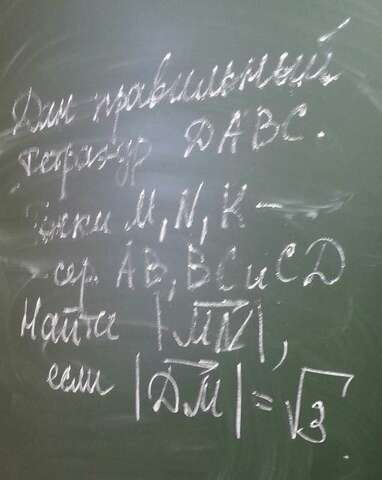 Дан правильный
тетраэдр DABC.
Точки M, N, K —
— сер. AB, BC и CD
Найти |MN|,
если |DM| = √3